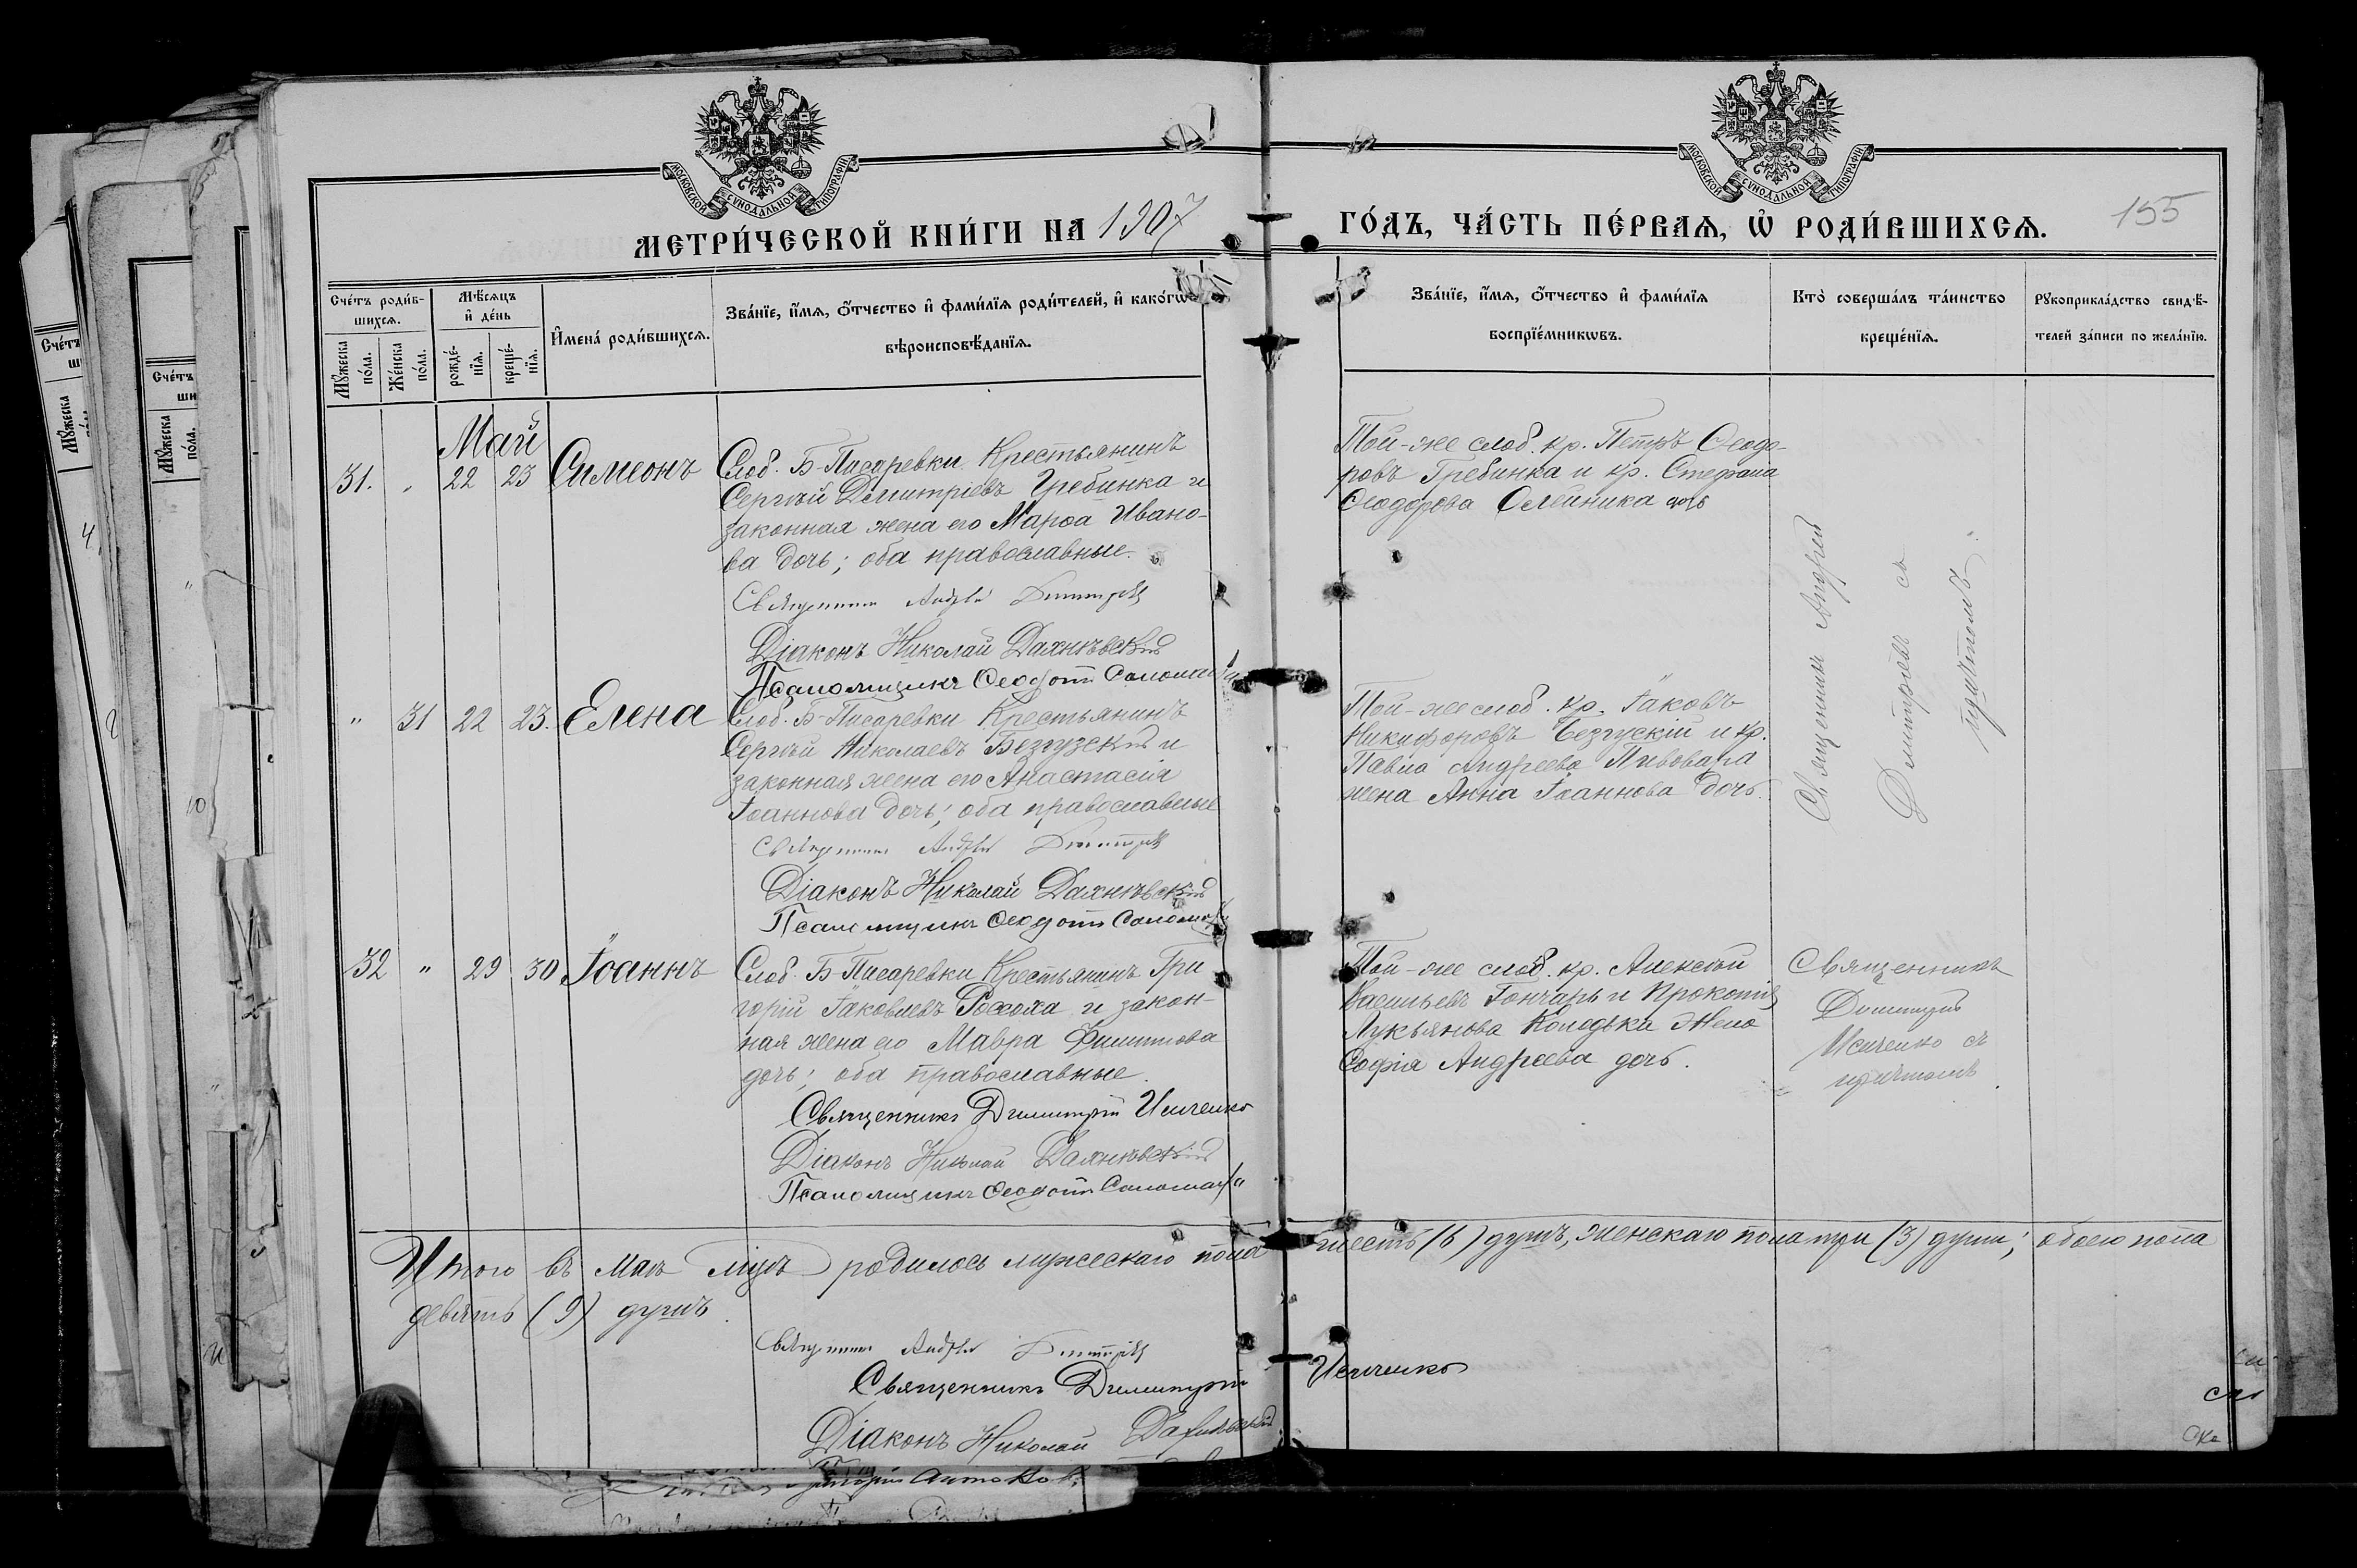 МОСКОВСКОЙ СѴНОДАЛЬНОЙ ТИПОГРАФІИ
МОСКОВСКОЙ СѴНОДАЛЬНОЙ ТИПОГРАФІИ
МЕТРИ́ЧЕСКОЙ КНИ́ГИ НА 1907
ГО́ДЪ, ЧА́СТЬ ПЕ́РВАѦ, Ѽ РОДИ́ВШИХСѦ.
155
Сче́тъ роди́в-
шихсѧ.
Мꙋ́жеска
по́ла.
Же́нска
по́ла.
Мѣ́сѧцъ
и҆ де́нь
рожде́-
нїѧ.
креще́-
нїѧ.
И҆мена̀ роди́вшихсѧ.
Зва́нїе, и҆́мѧ, ѻ҆́тчество и҆ фами́лїѧ роди́телей, и҆ како́гѡ
вѣроисповѣ́данїѧ.
Зва́нїе, и҆́мѧ, ѻ҆́тчество и҆ фами́лїѧ
воспрїе́мникѡвъ.
Кто̀ соверша́лъ та́инство
креще́нїѧ.
Рꙋкоприкла́дство свидѣ́-
телей за́писи по жела́нїю.
Май
31. " 22 23 Симеонъ
Слоб. Б-Писаревки Крестьянинъ
Сергѣй Димитріевъ Гребинка и
законная жена его Марѳа Ивано-
ва дочь; оба православные.
Священникъ Андрей Димитріевъ
Діаконъ Николай
Псаломщикъ Ѳеодотъ
Той-же слоб. кр. Петръ Ѳеодо-
ровъ Гребинка и кр. Стефана
Ѳеодорова Олейника дочь
Священникъ Андрей
Димитріевъ съ
причтомъ.
" 31 22 23. Елена
Слоб. Б-Писаревки Крестьянинъ
Сергѣй Николаевъ Безгузскій и
законная жена его Анастасія
Іоаннова дочь; оба православные
Священникъ Андрей Димитріевъ
Діаконъ Николай
Псаломщикъ Ѳеодотъ
Той-же слоб. кр. Іаковъ
Никифоровъ Безгускій и кр.
Павла Андреева Пивовара
жена Анна Іоаннова дочь.
32 " 29 30 Іоаннъ
Слоб. Б-Писаревки Крестьянинъ Гри
горій Іаковлевъ Россоха и закон-
ная жена его Мавра Филиппова
дочь; оба православные.
Священникъ Димитрій Исиченко
Діаконъ Николай
Псаломщикъ Ѳеодотъ
Той-же слоб. кр. Алексѣй
Васильевъ Гончаръ и Прокопія
Лукьянова Колодѣки жена
Софія Андреева дочь.
Священникъ
Димитрій
Исиченко съ
причтомъ.
Итого въ маѣ мцѣ родилось мужескаго пола шесть (6) душъ, женскаго пола три (3) души; обоего пола
девять (9) душъ.
Священникъ Андрей Димитріевъ
Священникъ Димитрій Исиченко
Діаконъ Николай